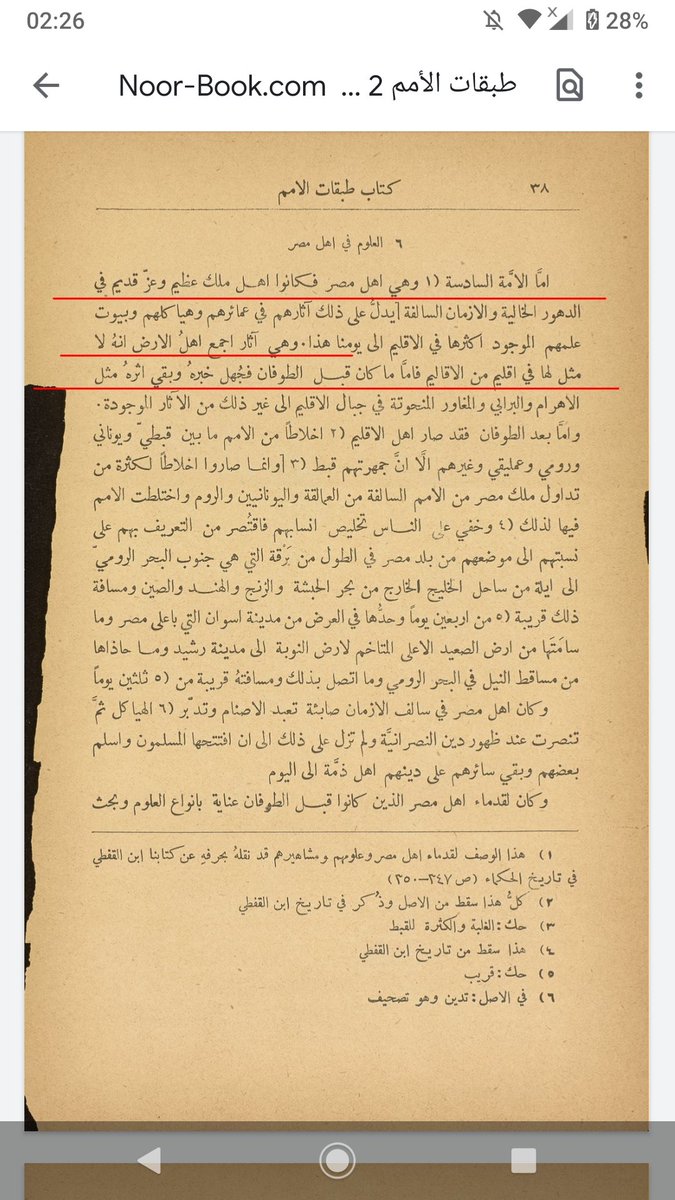 02:26
28%
طبقات الأمم 2 ... Noor-Book.com
٣٨
كتاب طبقات الامم
٦ العلوم في اهل مصر
امَّا الامَّة السادسة (١ وهي اهل مصر فكانوا اهل ملك عظيم وعزّ قديم في
الدهور الخالية والازمان السالفة [يدلُّ على ذلك آثارهم في عمائرهم وهياكلهم وبيوت
علمهم الموجود اكثرها في الاقليم الى يومنا هذا. وهي آثار اجمع اهلُ الارض انهُ لا
مثل لها في اقليم من الاقاليم فامَّا ما كان قبل الطوفان فجُهل خبرهُ وبقي اثرهُ مثل
الاهرام والبرابي والمغاور المنحوتة في جبال الاقليم الى غير ذلك من الآثار الموجودة.
وامَّا بعد الطوفان فقد صار اهل الاقليم (٢ اخلاطًا من الامم ما بين قبطيّ ويوناني
ورومي وعمليقي وغيرهم الَّا انَّ جمهرتهم قبط (٣ [وانما صاروا اخلاطًا لكثرة من
تداول ملك مصر من الامم السالفة من العمالقة واليونانيين والروم واختلطت الامم
فيها لذلك (٤ وخفي على الناس تخليص انسابهم فاقتُصر من التعريف بهم على
نسبتهم الى موضعهم من بلد مصر في الطول من بَرْقة التي هي جنوب البحر الروميّ
الى ايلة من ساحل الخليج الخارج من بحر الحبشة والزنج والهند والصين ومسافة
ذلك قريبة (٥ من اربعين يوماً وحدُّها في العرض من مدينة اسوان التي باعلى مصر وما
سامَتَها من ارض الصعيد الاعلى المتاخم لارض النوبة الى مدينة رشيد وما حاذاها
من مساقط النيل في البحر الرومي وما اتصل بذلك ومسافتهُ قريبة من (٥ ثلثين يوماً
وكان اهل مصر في سالف الازمان صابئة تعبد الاصنام وتدبّر (٦ الهياكل ثمَّ
تنصرت عند ظهور دين النصرانيَّة ولم تزل على ذلك الى ان افتتحها المسلمون واسلم
بعضهم وبقي سائرهم على دينهم اهل ذمَّة الى اليوم
وكان لقدماء اهل مصر الذين كانوا قبل الطوفان عناية بانواع العلوم وبحث
١) هذا الوصف لقدماء اهل مصر وعلومهم ومشاهيرهم قد نقلهُ بحرفهِ عن كتابنا ابن القفطي
في تاريخ الحكماء (ص ٣٤٧–٣٥٠)
٢) كلُّ هذا سقط من الاصل وذُكر في تاريخ ابن القفطي
٣) حك: الغلبة والكثرة للقبط
٤) هذا سقط من تاريخ ابن القفطي
٥) حك: قريب
٦) في الاصل: تدين وهو تصحيف